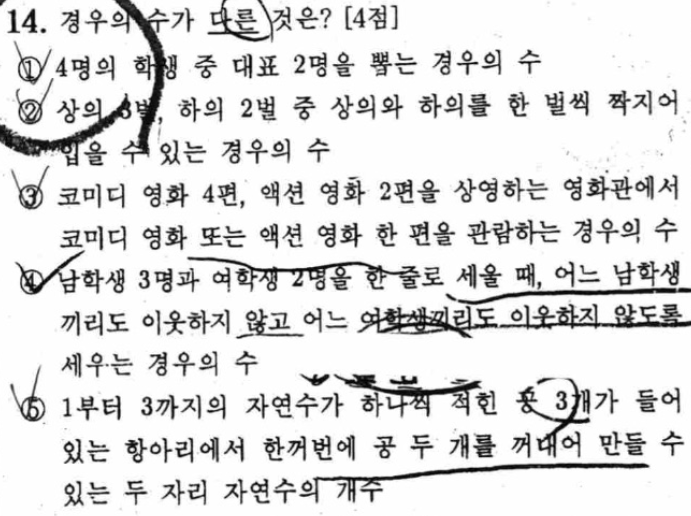 14. 경우의 수가 다른 것은? [4점]
① 4명의 학생 중 대표 2명을 뽑는 경우의 수
② 상의 3벌, 하의 2벌 중 상의와 하의를 한 벌씩 짝지어
입을 수 있는 경우의 수
③ 코미디 영화 4편, 액션 영화 2편을 상영하는 영화관에서
코미디 영화 또는 액션 영화 한 편을 관람하는 경우의 수
④ 남학생 3명과 여학생 2명을 한 줄로 세울 때, 어느 남학생
끼리도 이웃하지 않고 어느 여학생끼리도 이웃하지 않도록
세우는 경우의 수
⑤ 1부터 3까지의 자연수가 하나씩 적힌 공 3개가 들어
있는 항아리에서 한꺼번에 공 두 개를 꺼내어 만들 수
있는 두 자리 자연수의 개수